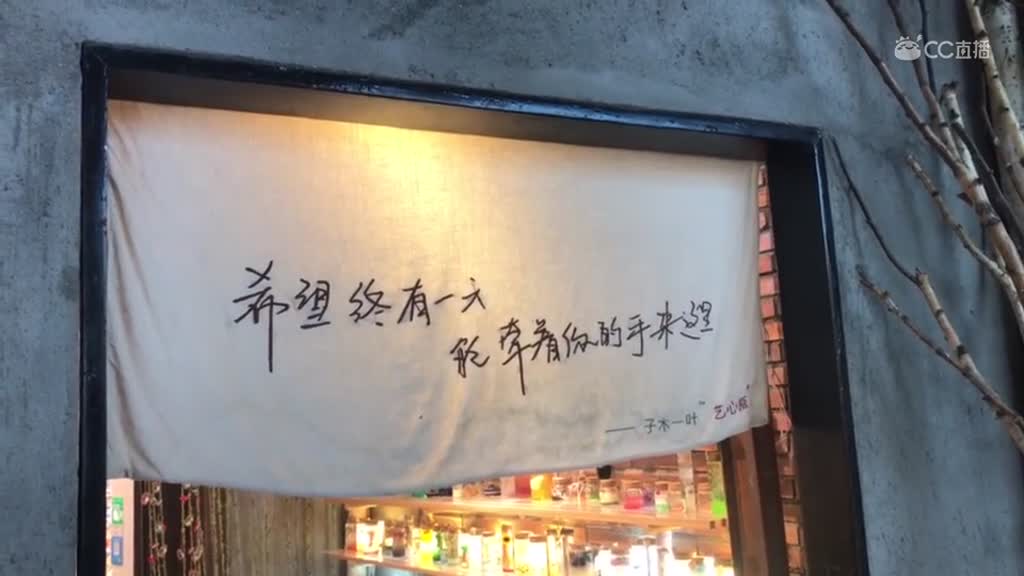 CC直播
希望终有一天
能牵着你的手来这里
——子木一叶™